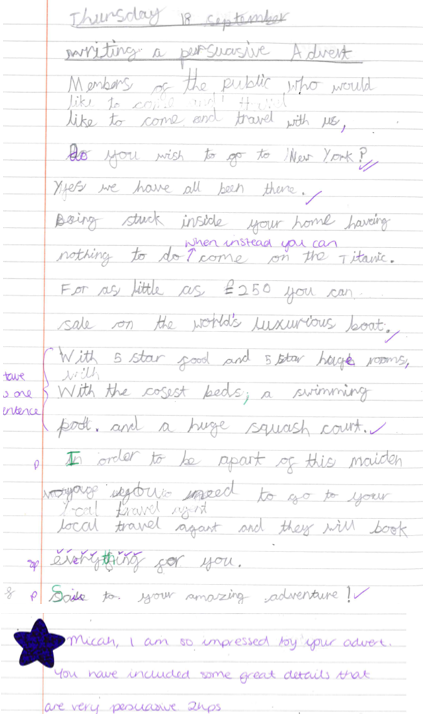 Thursday 18 september
writing a persuasive Advert
Members of the public who would
like to come and travel with us,
Do you wish to go to New York?
Yes we have all been there.
Being stuck inside your home having
when instead you can
nothing to do come on the Titanic.
For as little as £250 you can
sale on the world's luxurious boat.
With 5 star food and 5 star huge rooms,
with
With the cosest beds, a swimming
pool. and a huge squash court.
p
In order to be apart of this maiden
voyage you need to go to your
local travel agent
local travel agant and they will book
sp everything for you.
p
to your amazing adventure!
Micah, I am so impressed by your advert.
You have included some great details that
are very persuasive 2hps